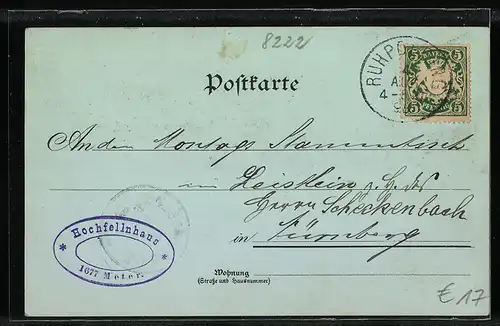 8222
Postkarte
RUHPO
4-
BAYERN
5 5
PFENNIG
5 5
An den Montags Stammtisch
im Leistlein z. H. des
Herrn Scheckenbach
in Nürnberg
Hochfellnhaus
* *
1677 Meter.
Wohnung
(Straße und Hausnummer)
€17